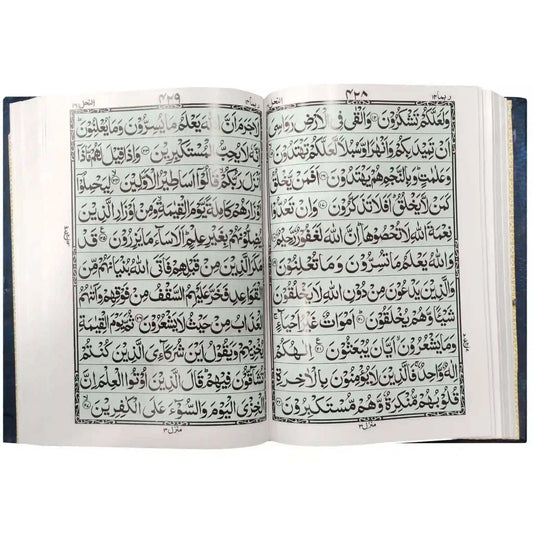 ربما ۱۴
۴۲۸
وَلَعَلَّكُمْ تَشْكُرُوْنَ ﴿۱۴﴾ وَاَلْقٰى فِى الْاَرْضِ رَوَاسِىَ
اَنْ تَمِيْدَ بِكُمْ وَاَنْهٰرًا وَّسُبُلًا لَّعَلَّكُمْ تَهْتَدُوْنَ ﴿۱۵﴾
وَعَلٰمٰتٍ ؕ وَبِالنَّجْمِ هُمْ يَهْتَدُوْنَ ﴿۱۶﴾ اَفَمَنْ يَّخْلُقُ
كَمَنْ لَّا يَخْلُقُ ؕ اَفَلَا تَذَكَّرُوْنَ ﴿۱۷﴾ وَاِنْ تَعُدُّوْا
نِعْمَةَ اللّٰهِ لَا تُحْصُوْهَا ؕ اِنَّ اللّٰهَ لَغَفُوْرٌ رَّحِيْمٌ ﴿۱۸﴾
وَاللّٰهُ يَعْلَمُ مَا تُسِرُّوْنَ وَمَا تُعْلِنُوْنَ ﴿۱۹﴾
وَالَّذِيْنَ يَدْعُوْنَ مِنْ دُوْنِ اللّٰهِ لَا يَخْلُقُوْنَ
شَيْئًا وَّهُمْ يُخْلَقُوْنَ ﴿۲۰﴾ اَمْوَاتٌ غَيْرُ اَحْيَآءٍ ۚ
وَمَا يَشْعُرُوْنَ ۙ اَيَّانَ يُبْعَثُوْنَ ﴿۲۱﴾ اِلٰهُكُمْ
اِلٰهٌ وَّاحِدٌ ۚ فَالَّذِيْنَ لَا يُؤْمِنُوْنَ بِالْاٰخِرَةِ
قُلُوْبُهُمْ مُّنْكِرَةٌ وَّهُمْ مُّسْتَكْبِرُوْنَ ﴿۲۲﴾
منزل ۳
ربما ۱۴
۴۲۹
النحل ۱۶
لَاجَرَمَ اَنَّ اللّٰهَ يَعْلَمُ مَا يُسِرُّوْنَ وَمَا يُعْلِنُوْنَ ؕ
اِنَّهٗ لَا يُحِبُّ الْمُسْتَكْبِرِيْنَ ﴿۲۳﴾ وَاِذَا قِيْلَ لَهُمْ مَّاذَاۤ
اَنْزَلَ رَبُّكُمْ ۙ قَالُوْۤا اَسَاطِيْرُ الْاَوَّلِيْنَ ﴿۲۴﴾ لِيَحْمِلُوْۤا
اَوْزَارَهُمْ كَامِلَةً يَّوْمَ الْقِيٰمَةِ ۙ وَمِنْ اَوْزَارِ الَّذِيْنَ
يُضِلُّوْنَهُمْ بِغَيْرِ عِلْمٍ ؕ اَلَا سَآءَ مَا يَزِرُوْنَ ﴿۲۵﴾ قَدْ
مَكَرَ الَّذِيْنَ مِنْ قَبْلِهِمْ فَاَتَى اللّٰهُ بُنْيَانَهُمْ مِّنَ
الْقَوَاعِدِ فَخَرَّ عَلَيْهِمُ السَّقْفُ مِنْ فَوْقِهِمْ وَاَتٰىهُمُ
الْعَذَابُ مِنْ حَيْثُ لَا يَشْعُرُوْنَ ﴿۲۶﴾ ثُمَّ يَوْمَ الْقِيٰمَةِ
يُخْزِيْهِمْ وَيَقُوْلُ اَيْنَ شُرَكَآءِىَ الَّذِيْنَ كُنْتُمْ
تُشَآقُّوْنَ فِيْهِمْ ؕ قَالَ الَّذِيْنَ اُوْتُوا الْعِلْمَ اِنَّ
الْخِزْىَ الْيَوْمَ وَالسُّوْٓءَ عَلَى الْكٰفِرِيْنَ ﴿۲۷﴾
منزل ۳